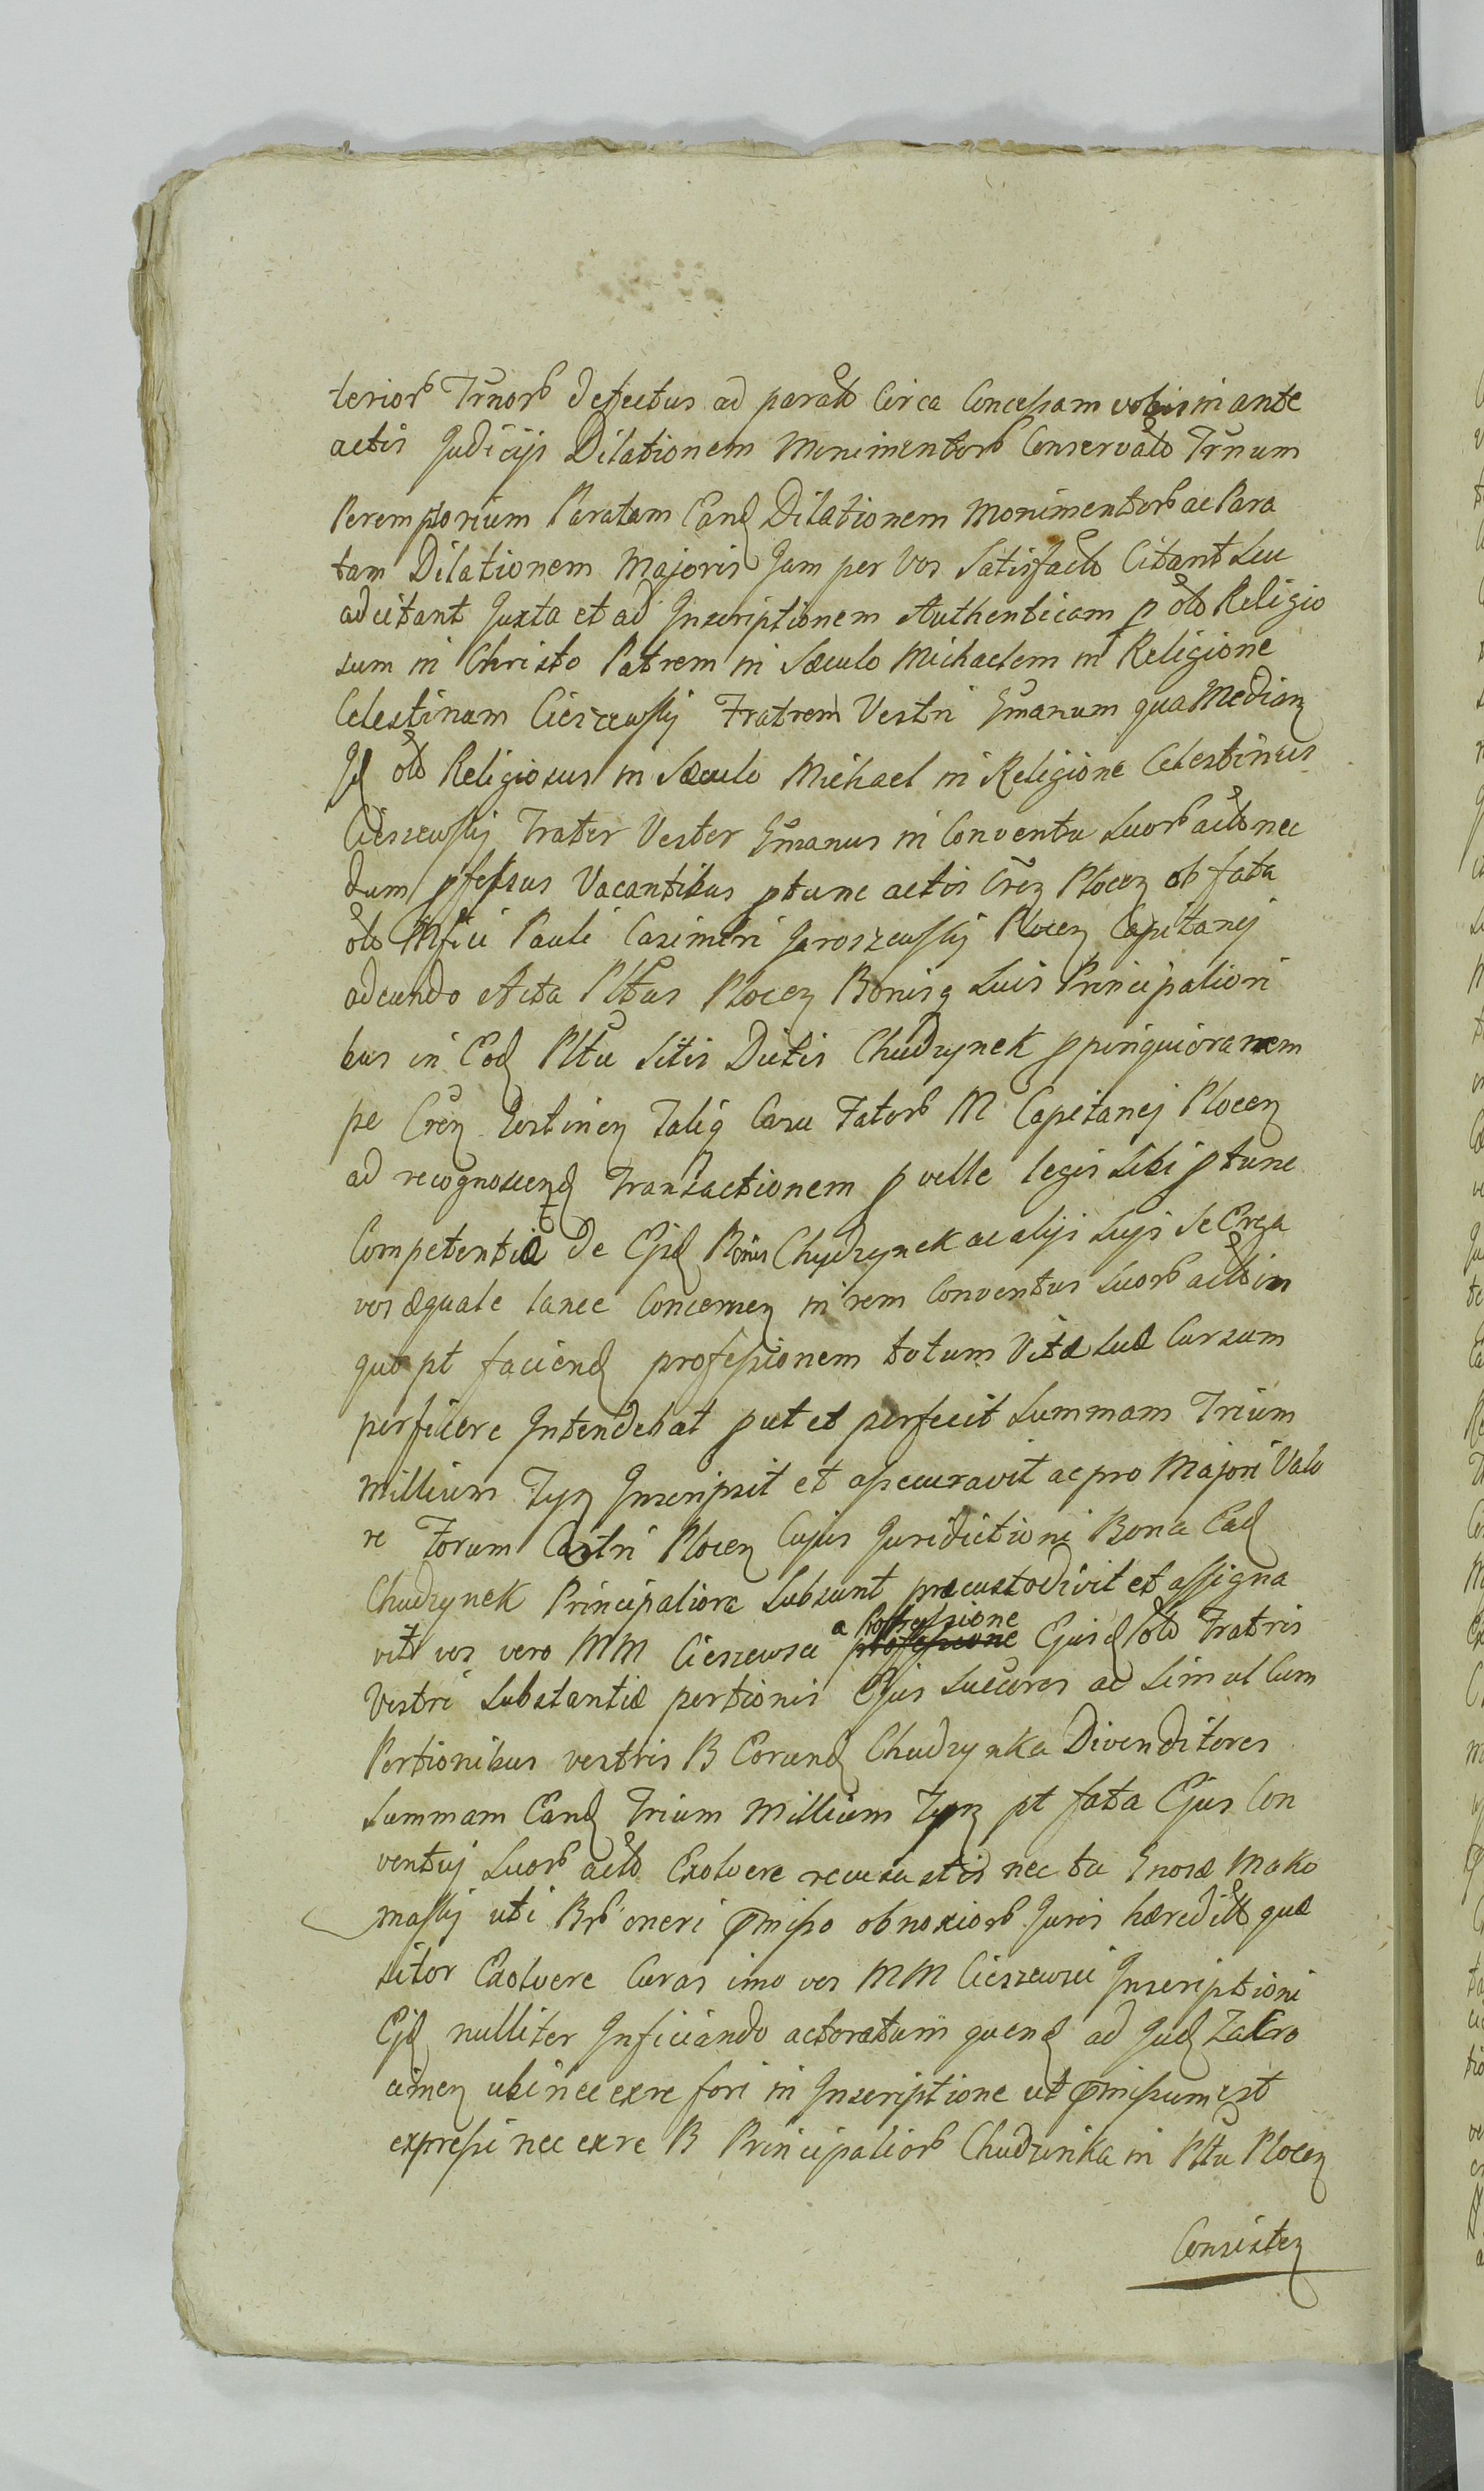 terior Trnor defectus ad parato Circa Concessam vobis in ante
actis Judicijs Dilationem Monimentor Conservato Trnum
Peremptorium Paratam Eand Dilationem Monimentor ac Para
tam Dilationem Majoris Jam per Vos Satisfacto Citant seu
adcitant Juxta et ad Inscriptionem Authenticam p olo Religio
sum in Christo Patrem in Sæculo Michaelem in Religione
Celestinum Cieszewskij Fratrem Vestri Gmanum qua Median
Id olo Religiosus in Sæculo Michael in Religione Celestinus
Cieszewskij Frater Vester Gmanus in Conventu Suor acto nec
dum pfessus Vacantibus ptunc actis Cren Plocen ob fata
olo Mfici Pauli Casimiri Jaroszewskij Plocen Capitanej
adeundo Acta Pltus Plocen Bonisq Suis Principaliori
bus in Eod Pltu Sitis Dictis Chudzynek ppinquiora nem
pe Cren Gostinen Taliq Casu Fator M Capitanej Plocen
ad recognoscend Transactionem p velle legis Sibi ptunc
Competentiæ de Ejsd Bonis Chydzynek ac alijs Sujs se Erga
vos æquale lance Concernen in rem Conventus Suor acto in
quo pt faciend professionem totum Vitæ Suæ Cursum
perficere Intendebat put et perfecit Summam Trium
Millium Tyn Inscripsit et assecuravit ac pro Majori Valo
re Forum Castri Plocen Cujus Juridictioni Bona Ead
Chudzynek Principaliora Subsunt præcustodivit et assigna
vit vos vero MM Cieszewsci a Professione Ejusd olo Fratris
Vestri Substantiæ portionis Ejus Succores ac Simul Cum
Portionibus vestris B Eorund Chudzynka Divenditores
Summam Eand Trium Millium Tyn pt fata Ejus Con
ventuj Suor acto Exolvere recusastis nec tu Gnose Mako
maskij uti Br oneri pmisso obnoxior Juris hæredit quæ
sitor Exolvere Curas imo vos MM Cieszewsci Inscriptioni
Ejd nulliter Inficiando actoratum quend ad Jud Zakro
cimen ubi nec exre fori in Inscriptione ut pmissum est
expressi nec exre B Principalior Chudzinka in Pltu Plocen
Consisten